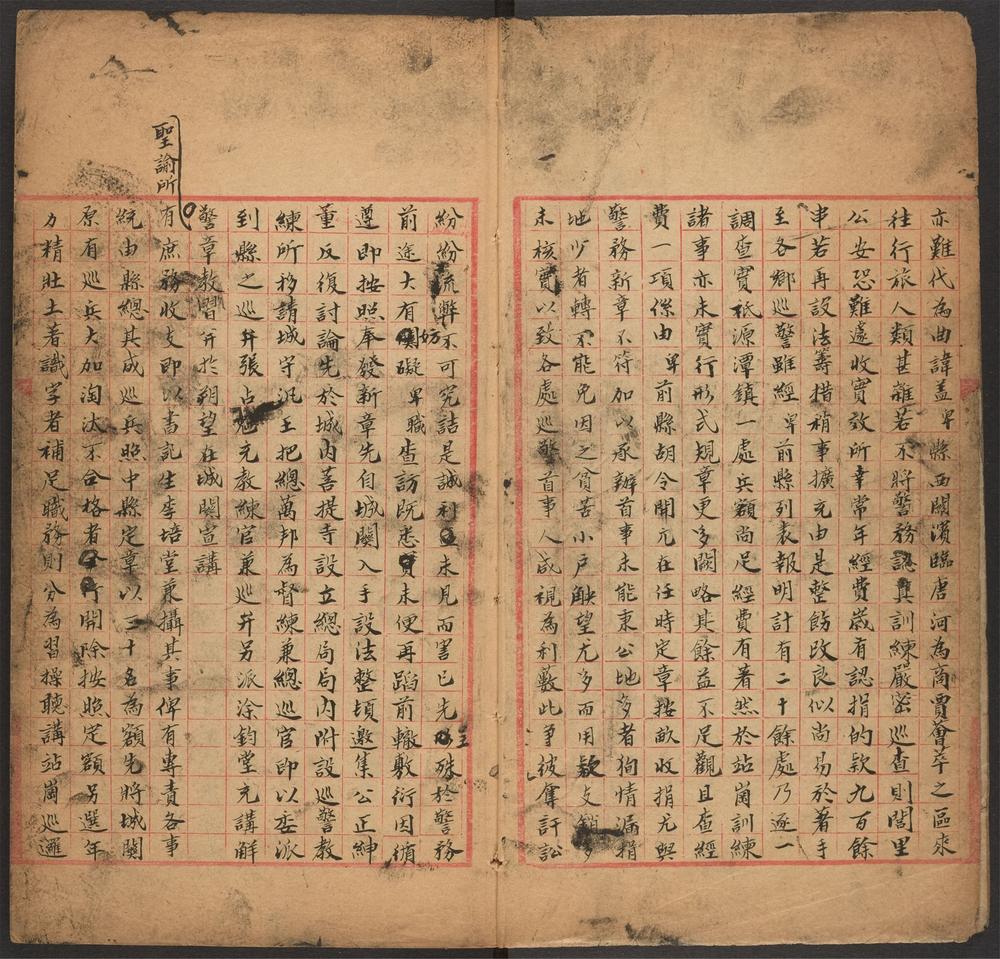 亦難代為曲諱蓋卑縣西關濱臨唐河為商賈薈萃之區來
往行旅人類甚雜若不將警務認真訓練嚴密巡查則閭里
公安恐難遽收實效所幸常年經費歲有認捐的款九百餘
串若再設法籌措稍事擴充由是整飭改良似尚易於著手
至各鄉巡警雖經卑前縣列表報明計有二十餘處乃逐一
調查實祇源潭鎮一處兵額尚足經費有著然於站崗訓練
諸事亦未實行形式規章更多闕略其餘益不足觀且查經
費一項係由卑前縣胡令開兀在任時定章按畝收捐尤與
警務新章不符加以承辦首事未能秉公地多者狥情漏捐
地少者轉不能免因之貧苦小戶觖望尤多而用款支銷多
未核實以致各處巡警首事人咸視為利藪此爭彼奪訐訟
紛紛流弊不可究詰是誠利未見而害已先至殊於警務
前途大有妨礙卑職查訪既悉實未便再蹈前轍敷衍因循
遵即按照奉發新章先自城關入手設法整頓邀集公正紳
董反復討論先於城內菩提寺設立總局局內附設巡警教
練所移請城守汛王把總萬邦為督練兼總巡官即以委派
到縣之巡弁張占魁充教練官兼巡弁另派涂鈞堂充講解
警章教習并於朔望在城關宣講
聖諭所
有庶務收支即以書記生李培堂兼攝其事俾有專責各事
統由縣總其成巡兵照中縣定章以三十名為額先將城關
原有巡兵大加淘汰不合格者全行開除按照定額另選年
力精壯土著識字者補足職務則分為習操聽講站崗巡邏